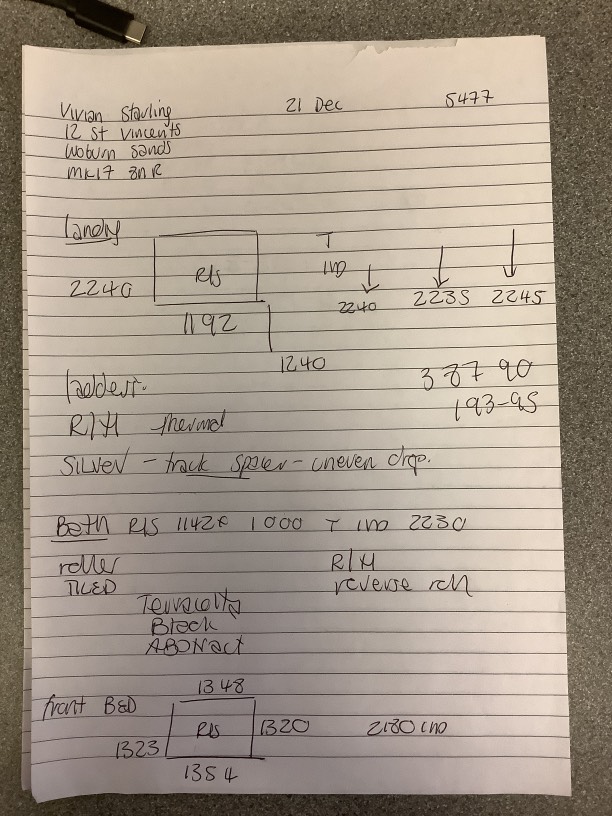 Vivian Starling 21 Dec 5477
12 St Vincents
Woburn Sands
MK17 8NR
landy
2240 R/S T
IND
2240 2235 2245
1192
1240
387 90
193-95
R/H thermal
SILVER - track spacer - uneven drop.
Both R/S 1142 1000 T IND 2230
roller R/H
TILED reverse roll
Terracotta
Black
1348
front BED R/S 1320 2180 IND
1323
1354